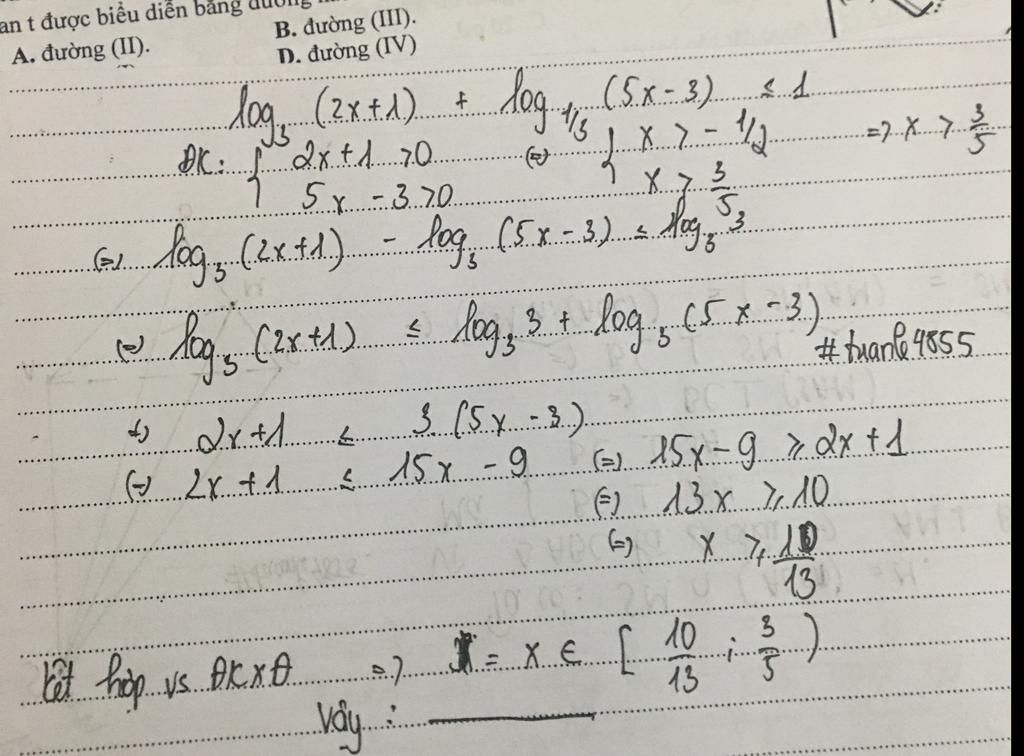 an t được biểu diễn bằng đường
A. đường (II).
B. đường (III).
D. đường (IV)
log₃ (2x+1) + log₁/₃ (5x-3) ≤ 1
ĐK: { 2x+1 >0 (=) { x > -1/2 => x > 3/5
5x - 3 >0 x > 3/5
(=) log₃ (2x+1) - log₃ (5x-3) ≤ log₃ 3
(=) log₃ (2x+1) ≤ log₃ 3 + log₃ (5x-3)
#tuanle4855
(=) 2x+1 ≤ 3 (5x-3)
(=) 2x+1 ≤ 15x - 9 (=) 15x-9 ≥ 2x+1
(=) 13x ≥ 10
(=) x ≥ 10/13
kết hợp vs ĐKXĐ => = x ∈ [ 10/13 ; 3/5 )
Vậy :